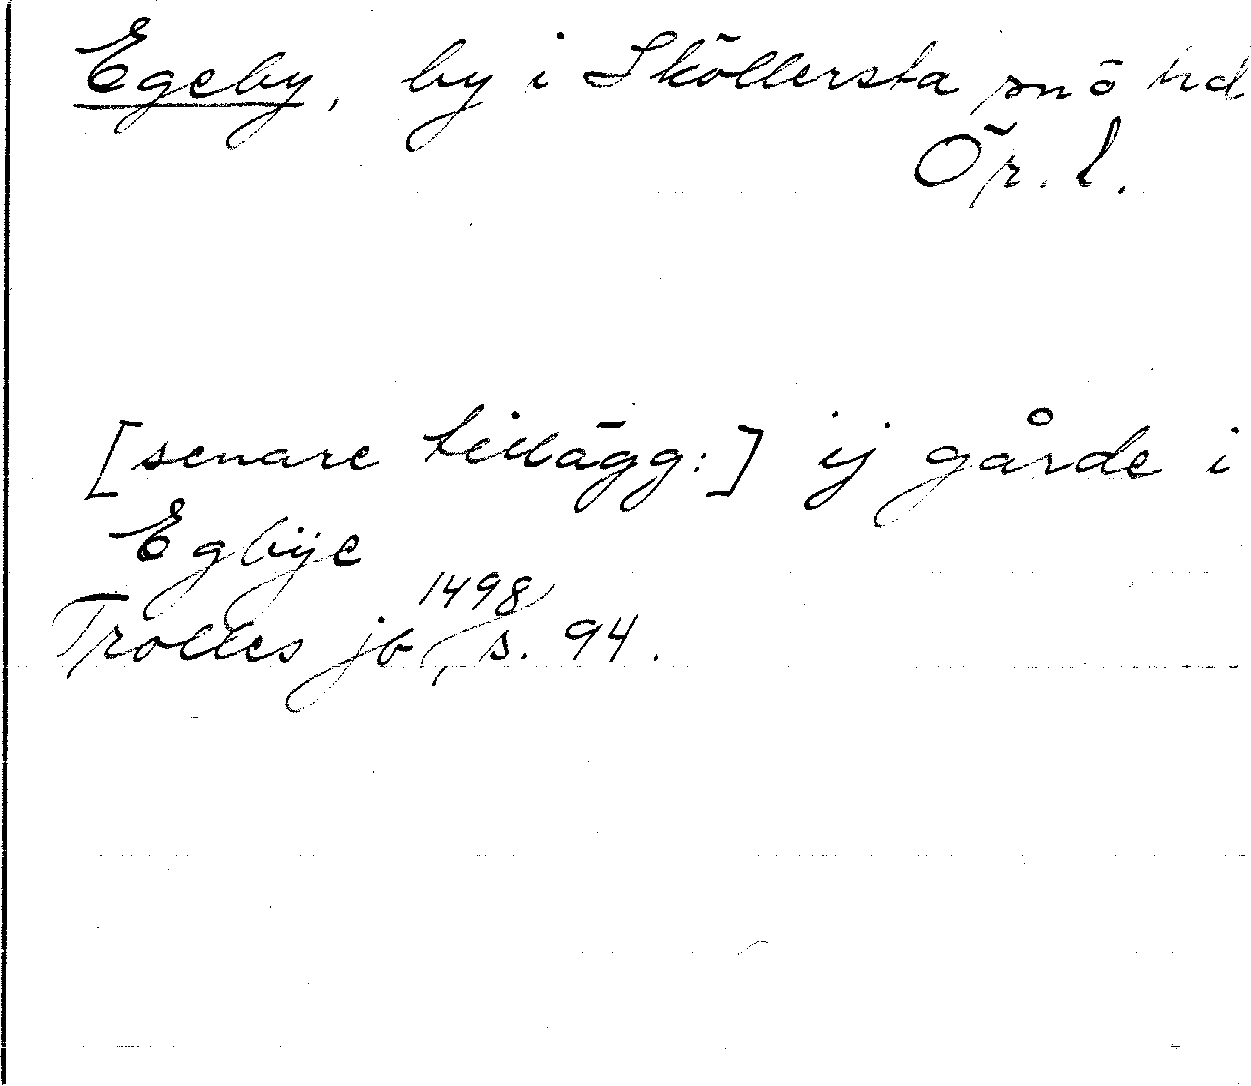 Egeby, by i Sköllersta snö hd
Ör. l.
[senare tillägg:] ij gårde i
Egbÿe
Trolles jb 1498, s. 94.